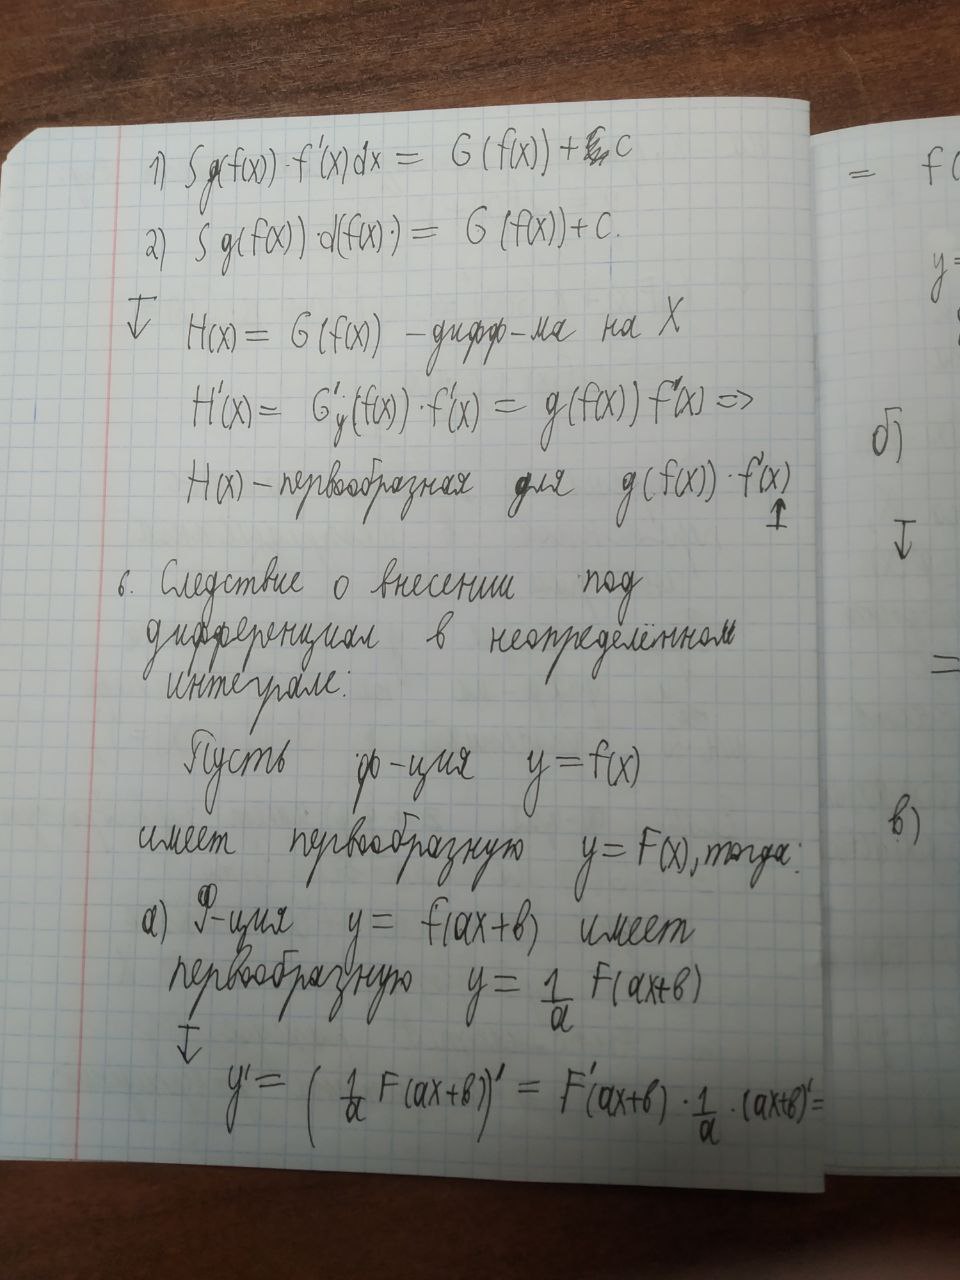 1) ∫g(f(x))·f'(x)dx = G(f(x))+C
2) ∫g(f(x))·d(f(x)·) = G(f(x))+C.
↓ H(x) = G(f(x)) – дифф-ма на X
H'(x) = G'y(f(x))·f'(x) = g(f(x)) f'(x) =>
H(x) – первообразная для g(f(x))·f'(x)
↑
6. Следствие о внесении под
дифференциал в неопределённом
интеграле:
Пусть ф-ция y = f(x)
имеет первообразную y = F(x), тогда:
а) Ф-ция y = f(ax+в) имеет
первообразную y = 1/a F(ax+в)
↓
y' = (1/a F(ax+в))' = F'(ax+в)·1/a·(ax+в)' =
= f(
y=
б)
↓
=
в)